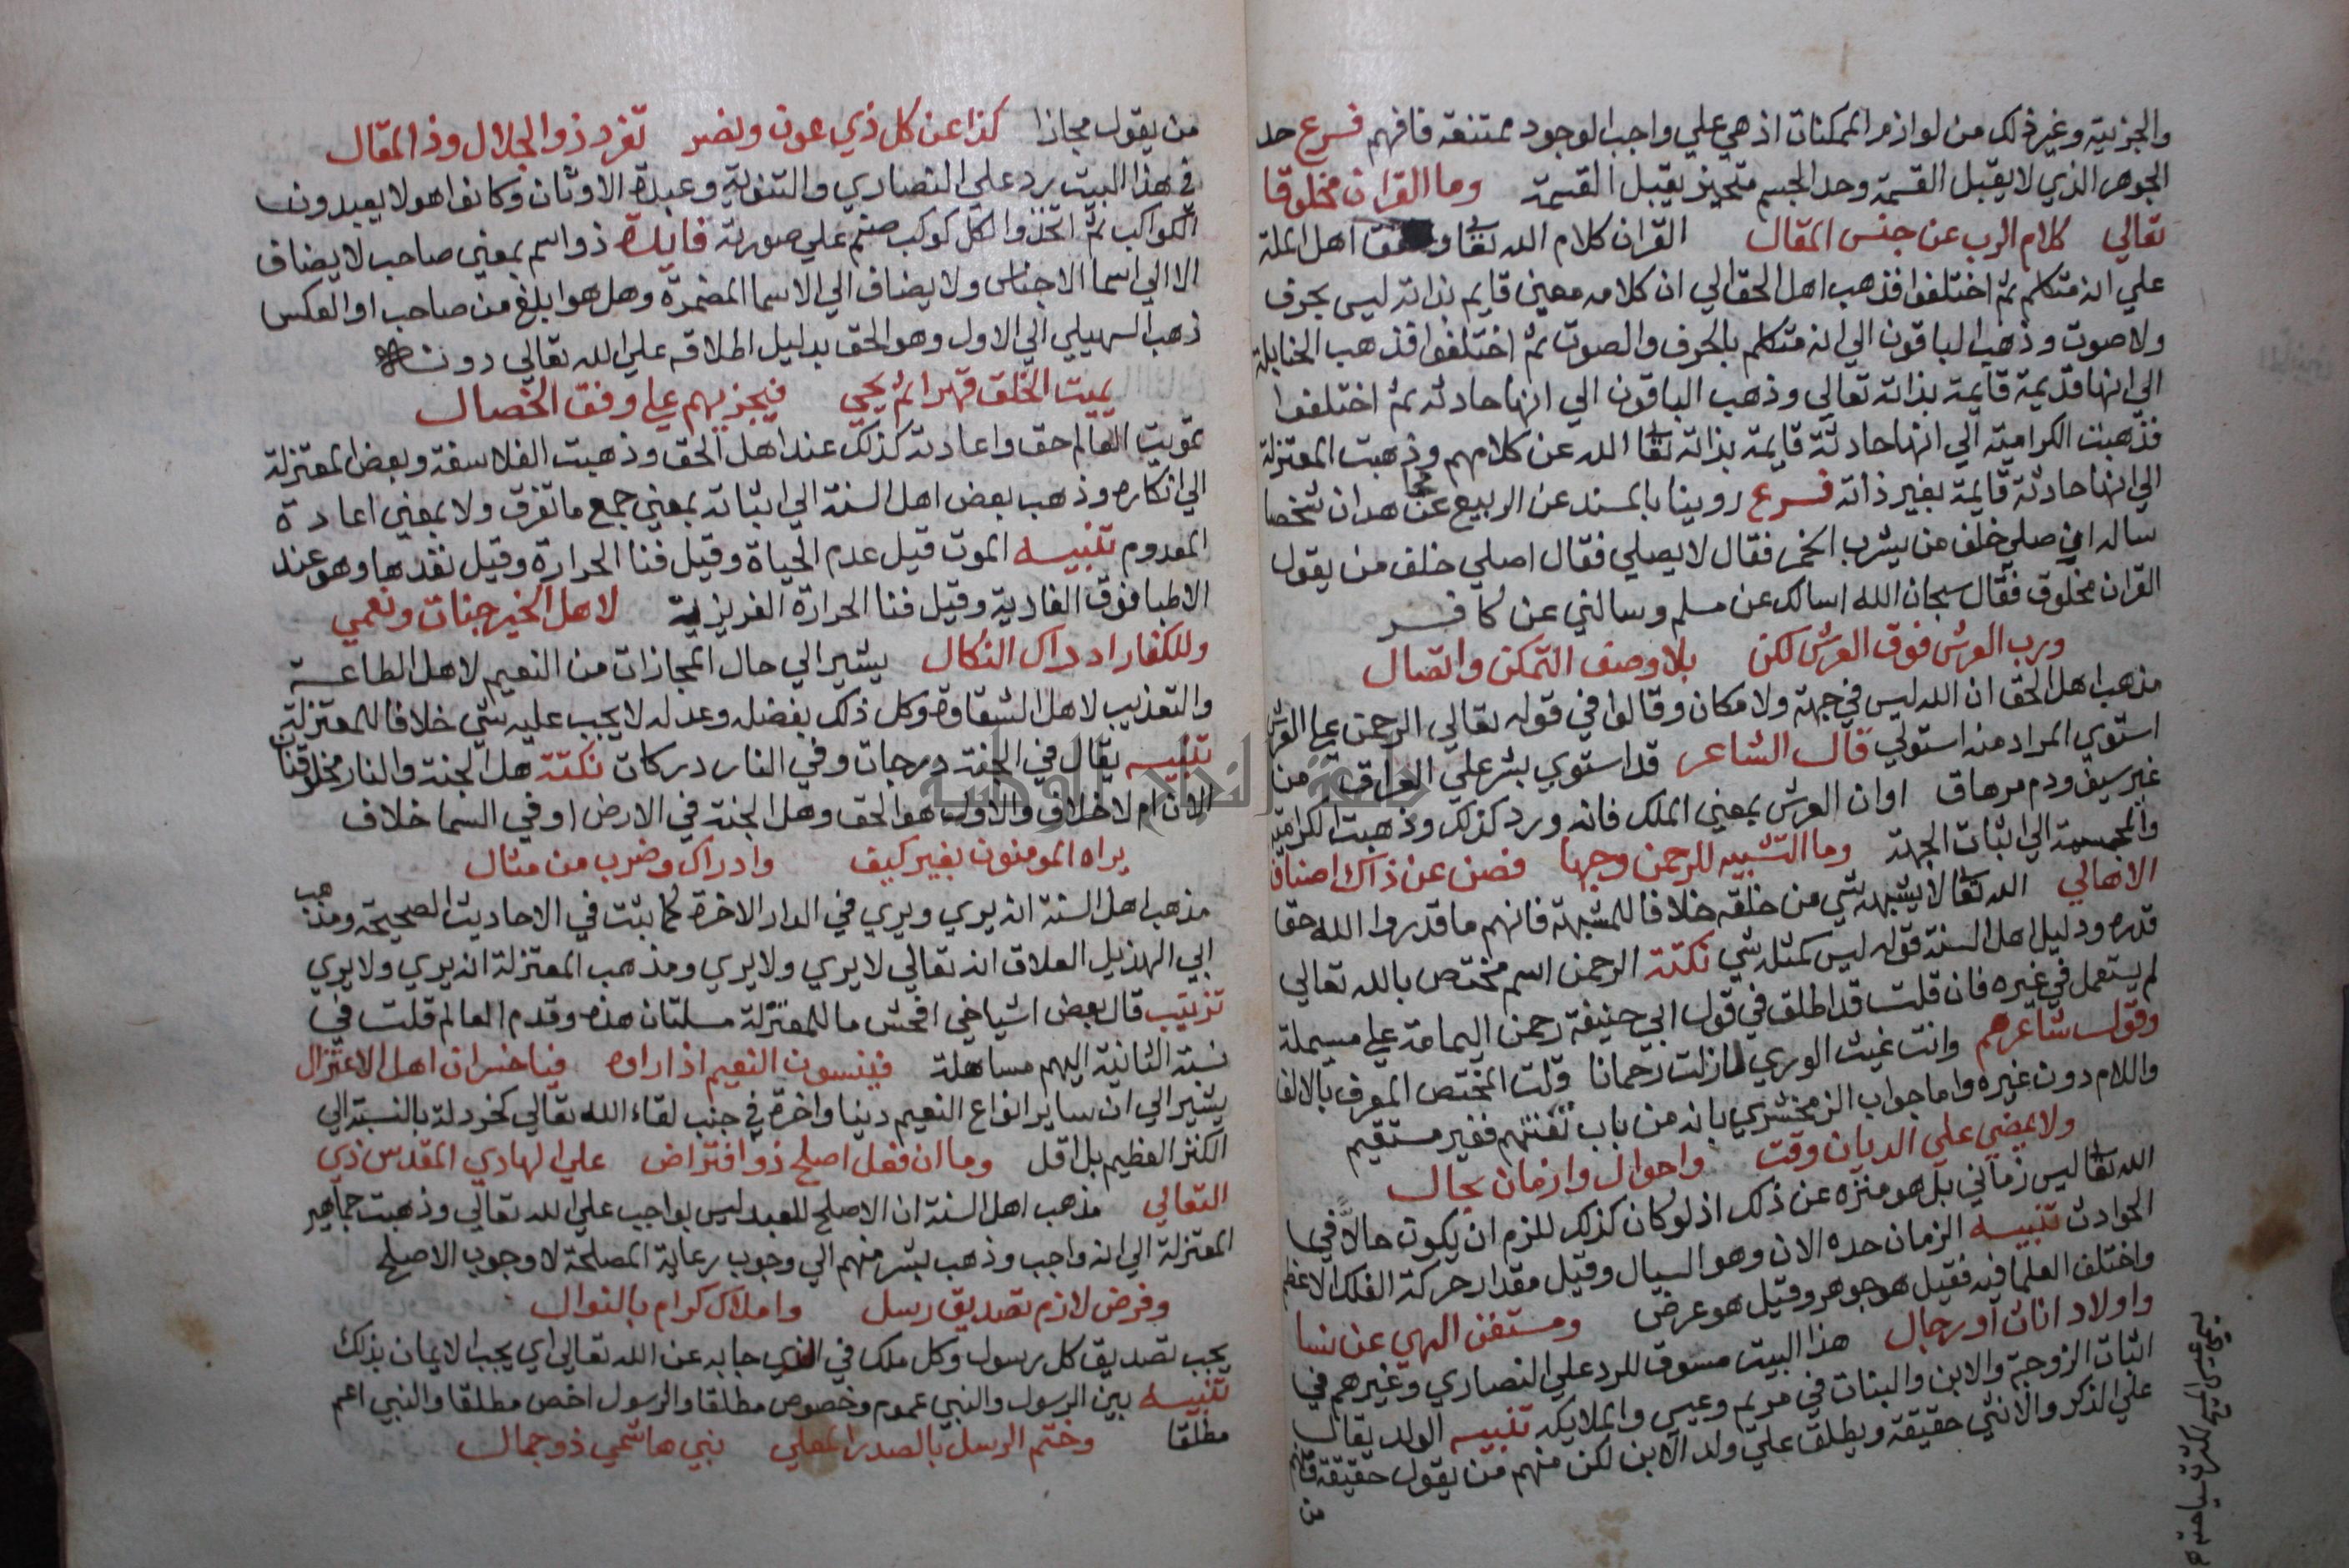 والجزئية وغير ذلك من لوازم الممكنات اذ هي علي واجب الوجود ممتنعة فافهم فرع حد
الجوهر الذي لا يقبل القسمة وحد الجسم متحيز يقبل القسمة وما القران مخلوقا
تعالي كلام الرب عن جنس المقال القران كلام الله تعا اهل الملة
علي انه متكلم ثم اختلفوا فذهب اهل الحق الي ان كلامه معني قايم بذاته ليس بحرف
ولا صوت وذهب الباقون الي انه متكلم بالحرف والصوت ثم اختلفوا فذهب الحنابلة
الي انها قديمة قايمة بذاته تعالي وذهب الباقون الي انها حادثه ثم اختلفوا
فذهبت الكرامية الي انها حادثة قايمة بذاته تعا الله عن كلامهم وذهبت المعتزلة
الي انها حادثة قايمة بغير ذاته فرع روينا بالمسند عن الربيع عن ان شخصا
ساله اني صلي خلف من يشرب الخمر فقال لا يصلي فقال اصلي خلف من يقول
القران مخلوق فقال سبحان الله اسالك عن مسلم وسالتني عن كافر
ورب العرش فوق العرش لكن بلا وصف التمكن واتصال
مذهب اهل الحق ان الله ليس في جهة ولا مكان وقالوا في قوله تعالي الرحمن علي العرش
استوي المراد منه استولي قال الشاعر قد استوي بشر علي العراق من
غير سيف ودم مرهاق او ان العرش بمعني الملك فانه ورد كذلك وذهبت الكرامية
والمجسمة الي اثبات الجهة وما التشبيه للرحمن وجها فصن عن ذاك اصناف
الاهالي الله تعا لا يشبهه شي من خلقه خلافا للمشبهة فانهم ما قدروا الله حق
قدره ودليل اهل السنة قوله ليس كمثله شي نكتة الرحمن اسم مختص بالله تعالي
لم يستعمل في غيره فان قلت قد اطلق في قول ابي حنيفة رحمن اليمامة علي مسيلمة
وقول شاعرهم وانت غيث الوري لازلت رحمانا قلت المختص المعرف بالالف
واللام دون غيره واما جواب الزمخشري بانه من باب تعنتهم فغير مستقيم
ولا يمضي علي الديان وقت واحوال وازمان بحال
الله تعا ليس زماني بل هو منزه عن ذلك اذ لو كان كذلك للزم ان يكون حالا في
الحوادث تنبيه الزمان حده الان وهو السيال وقيل مقدار حركة الفلك الاعظم
واختلف العلما فيه فقيل هو جوهر وقيل هو عرض ومستغن الهي عن نسا
واولاد اناث او رجال هذا البيت مسوق للرد علي النصاري وغيرهم في
اثبات الزوجة والابن والبنات في مريم وعيسي والملايكه تنبيه الولد يقال
علي الذكر والانثي حقيقة ويطلق علي ولد الابن لكن منهم من يقول حقيقة
من
من يقول مجازا كذا عن كل ذي عون ونصر تفرد ذو الجلال وذو المقال
في هذا البيت رد علي النصاري والثنوية وعبدة الاوثان وكانوا هولا يعبدون
الكواكب ثم اتخذوا لكل كوكب صنم علي صورته فايدة ذو اسم بمعني صاحب لا يضاف
الا الي اسما الاجناس ولا يضاف الي الاسما المضمرة وهل هو ابلغ من صاحب او العكس
ذهب السهيلي الي الاول وهو الحق بدليل اطلاقه علي الله تعالي دون
يميت الخلق قهرا ثم يحيي فيجزيهم علي وفق الخصال
تمويت العالم حق واعادته كذلك عند اهل الحق وذهبت الفلاسفة وبعض المعتزلة
الي انكاره وذهب بعض اهل السنة الي اثباته بمعني جمع ما تفرق ولا بمعني اعادة
المعدوم تنبيه الموت قيل عدم الحياة وقيل فنا الحرارة وقيل نقدها وهو عند
الاطبا فوق العادية وقيل فنا الحرارة الغريزية لاهل الخير جنات ونعمي
وللكفار ادراك النكال يشير الي حال المجازات من النعيم لاهل الطاعة
والتعذيب لاهل الشقاوة وكل ذلك بفضله وعدله لا يجب عليه شي خلافا للمعتزلة
تنبيه يقال في الجنة درجات وفي النار دركات نكتة هل الجنة والنار مخلوقتان
الان ام لا خلاف والاول هو الحق وهل الجنة في الارض او في السما خلاف
يراه المومنون بغير كيف وادراك وضرب من مثال
مذهب اهل السنة انه يري ويري في الدار الاخرة كما ثبت في الاحاديث الصحيحة ومذهب
ابي الهذيل العلاف انه تعالي لا يري ولا يري ومذهب المعتزلة انه يري ولا يري
ترتيب قال بعض اشياخي افحش ما للمعتزلة مسلتان هذه وقدم العالم قلت في
نسبة الثانية اليهم مساهلة فينسون النعيم اذا راوه فيا خسران اهل الاعتزال
يشير الي ان ساير انواع النعيم دنيا واخرة في جنب لقاء الله تعالي كخردلة بالنسبة الي
الكنز العظيم بل اقل وما ان فعل اصلح ذو افتراض علي الهادي المقدس ذي
التعالي مذهب اهل السنة ان الاصلح للعبد ليس بواجب علي الله تعالي وذهبت جماهير
المعتزلة الي انه واجب وذهب بشر منهم الي وجوب رعاية المصلحة لا وجوب الاصلح
وفرض لازم تصديق رسل واملاك كرام بالنوال
يجب تصديق كل رسول وكل ملك في الذي جا به عن الله تعالي اي يجب الايمان بذلك
تنبيه بين الرسول والنبي عموم وخصوص مطلقا والرسول اخص مطلقا والنبي اعم
مطلقا وختم الرسل بالصدر المعلي نبي هاشمي ذو جمال
جامعة النجاح الوطنية